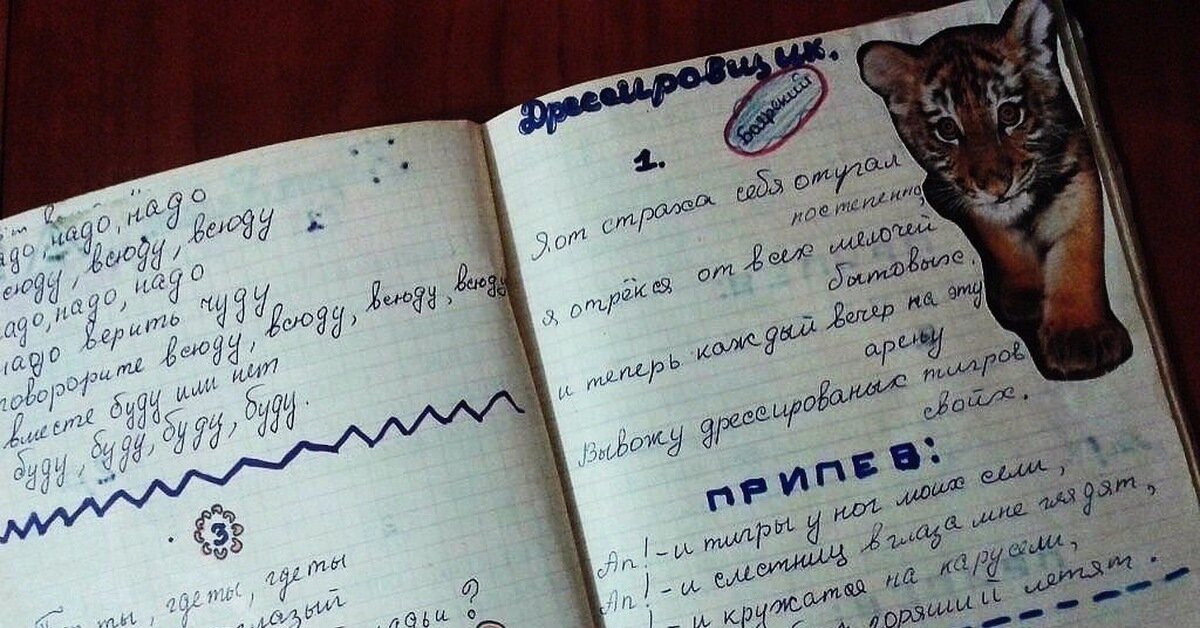 надо, надо
всюду, всюду
надо, надо
надо верить чуду
говорорите всюду, всюду, всюду, всюду
вместе буду или нет
буду, буду, буду, буду.
3
ты, где ты, где ты
?
Дрессировщик.
Боярский
1.
Я от страха себя отугал
постепенно,
я отрёкся от всех мелочей
бытовых.
и теперь каждый вечер на эту
арену
Вывожу дрессированых тигров
свойх.
ПРИПЕВ:
Ап! – и тигры у ног моих сели,
Ап! – и слестниц в глаза мне глядят,
– и кружатся на карусели,
горящий летят.